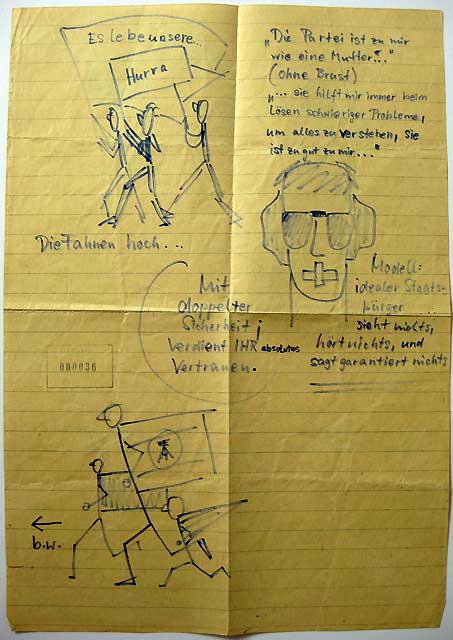 Es lebe unsere...
Hurra
Die Fahnen hoch...
„Die Partei ist zu mir
wie eine Mutter..."
(ohne Brust)
„... sie hilft mir immer beim
Lösen schwieriger Probleme,
um alles zu verstehen, sie
ist zu gut zu mir..."
Modell:
idealer Staats-
bürger
sieht nichts,
hört nichts, und
sagt garantiert nichts
Mit
doppelter
Sicherheit
verdient IHR absolutes
Vertrauen.
000036
b.w.